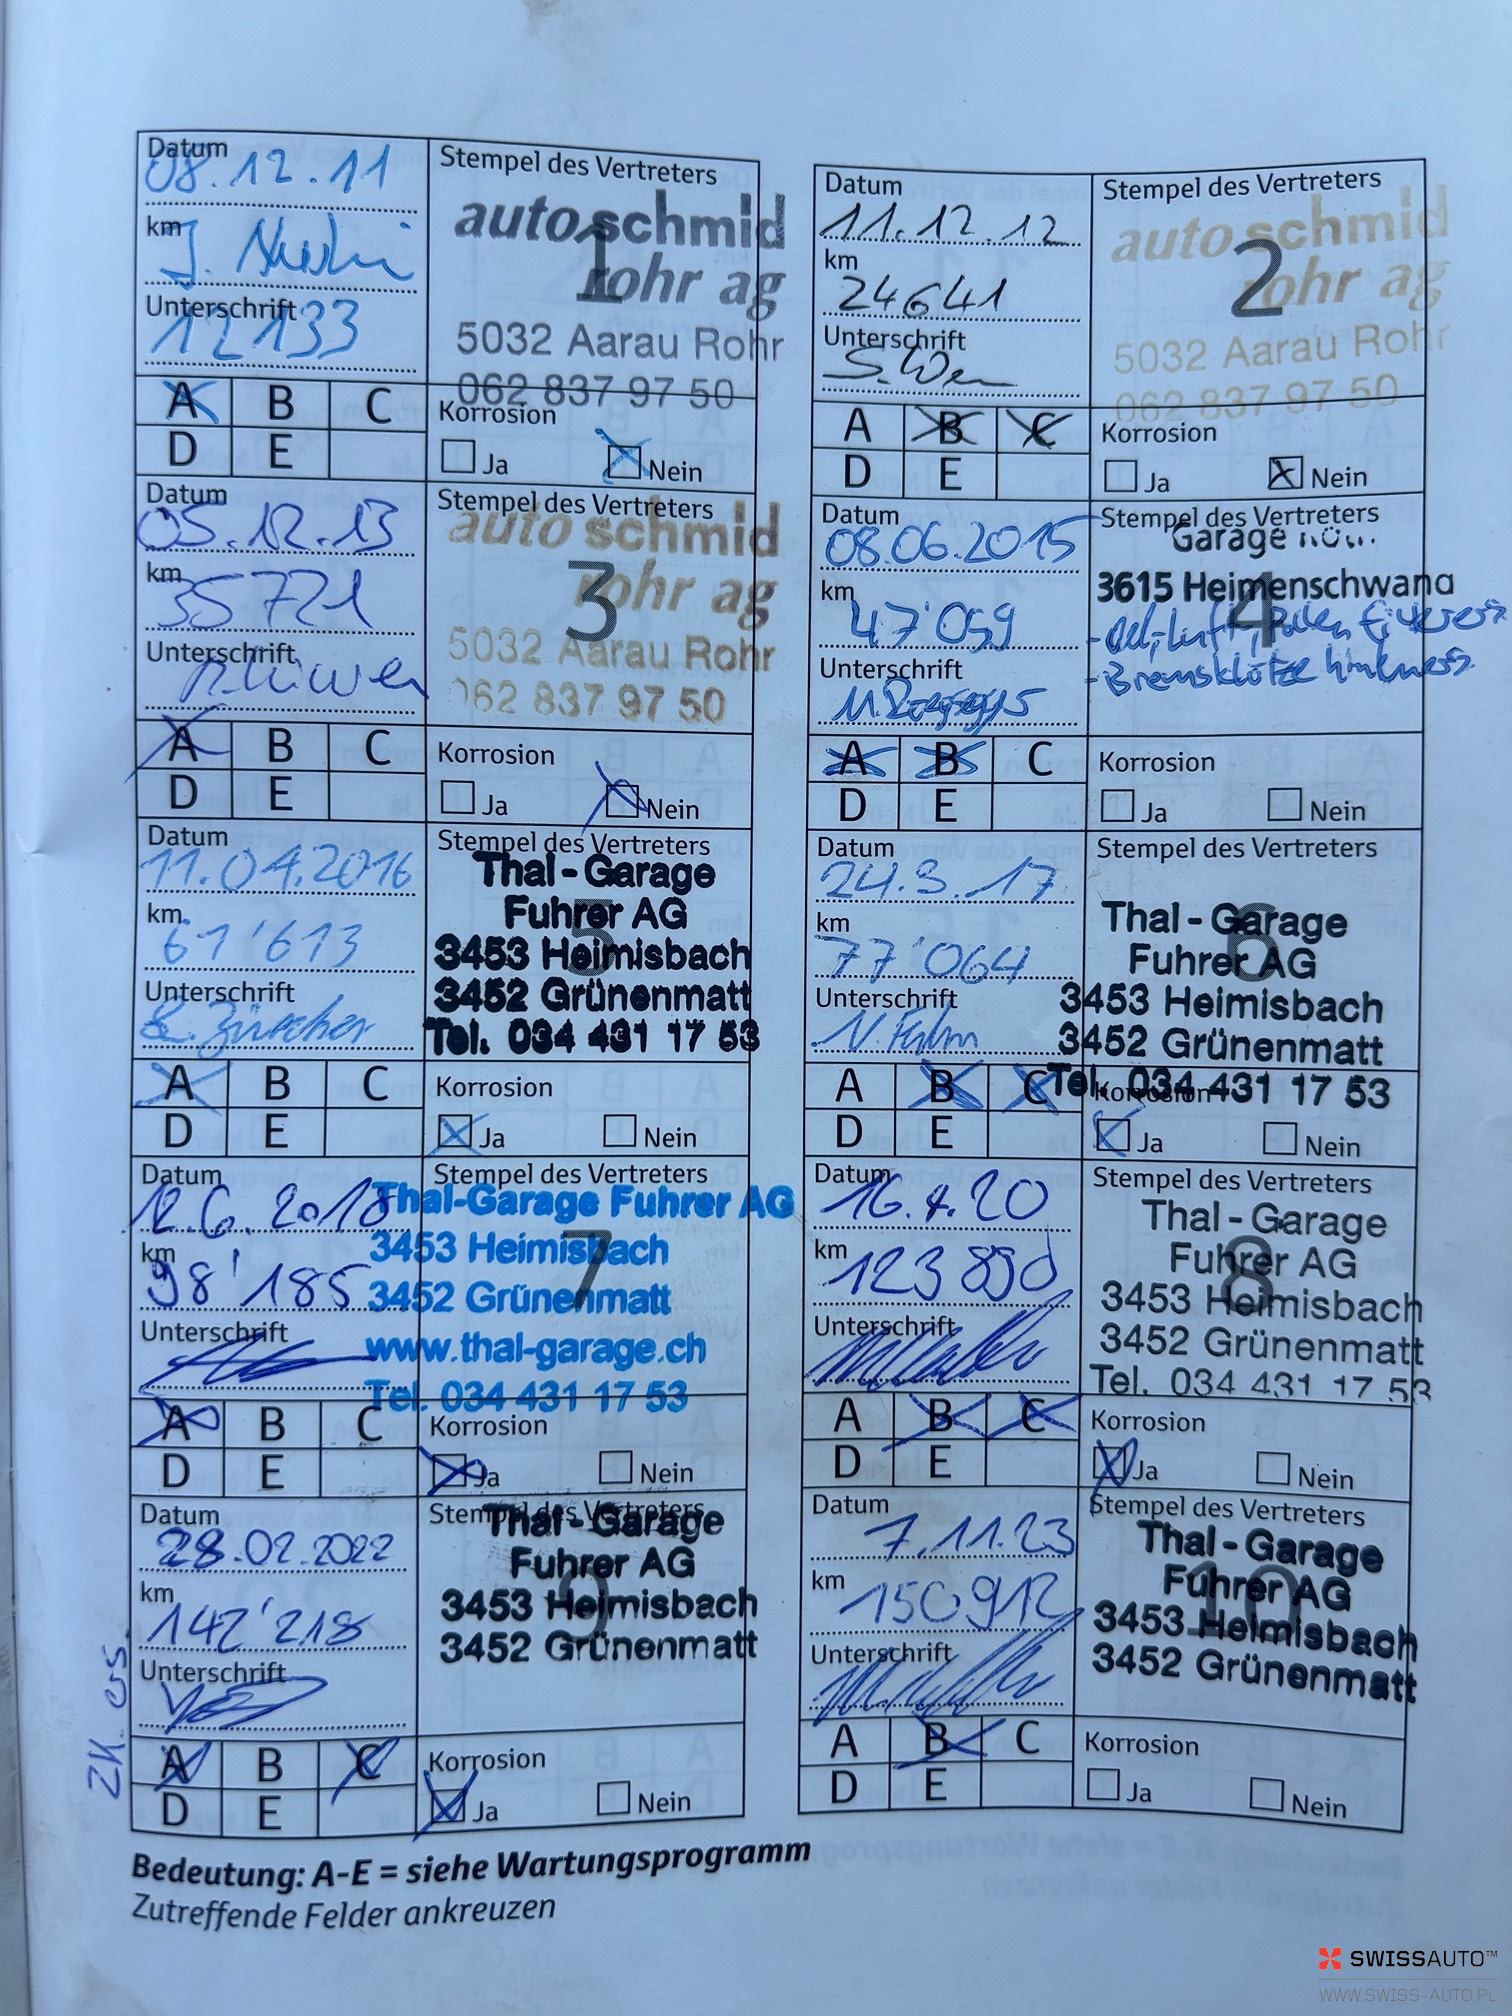 Datum
08.12.11
km
Unterschrift
12133
Stempel des Vertreters
1
auto schmid
rohr ag
5032 Aarau Rohr
062 837 97 50
A B C
D E
Korrosion
Ja Nein
Datum
11.12.12
km
24641
Unterschrift
Stempel des Vertreters
2
auto schmid
rohr ag
5032 Aarau Rohr
062 837 97 50
A B C
D E
Korrosion
Ja Nein
Datum
05.12.13
km
35721
Unterschrift
Stempel des Vertreters
3
auto schmid
rohr ag
5032 Aarau Rohr
062 837 97 50
A B C
D E
Korrosion
Ja Nein
Datum
08.06.2015
km
47'059
Unterschrift
Stempel des Vertreters
4
Garage
3615 Heimenschwand
- Oel, Luft, Pollen
- Bremsklötze
A B C
D E
Korrosion
Ja Nein
Datum
11.04.2016
km
61'613
Unterschrift
Zürcher
Stempel des Vertreters
5
Thal-Garage
Fuhrer AG
3453 Heimisbach
3452 Grünenmatt
Tel. 034 431 17 53
A B C
D E
Korrosion
Ja Nein
Datum
24.3.17
km
77'064
Unterschrift
Stempel des Vertreters
6
Thal-Garage
Fuhrer AG
3453 Heimisbach
3452 Grünenmatt
Tel. 034 431 17 53
A B C
D E
Korrosion
Ja Nein
Datum
12.6.2018
km
98'185
Unterschrift
Stempel des Vertreters
7
Thal-Garage Fuhrer AG
3453 Heimisbach
3452 Grünenmatt
www.thal-garage.ch
Tel. 034 431 17 53
A B C
D E
Korrosion
Ja Nein
Datum
16.4.20
km
Unterschrift
Stempel des Vertreters
8
Thal-Garage
Fuhrer AG
3453 Heimisbach
3452 Grünenmatt
Tel. 034 431 17 53
A B C
D E
Korrosion
Ja Nein
Datum
28.02.2022
km
142'218
Unterschrift
Stempel des Vertreters
9
Thal-Garage
Fuhrer AG
3453 Heimisbach
3452 Grünenmatt
A B C
D E
Korrosion
Ja Nein
Datum
7.11.23
km
150912
Unterschrift
Stempel des Vertreters
10
Thal-Garage
Fuhrer AG
3453 Heimisbach
3452 Grünenmatt
A B C
D E
Korrosion
Ja Nein
Bedeutung: A-E = siehe Wartungsprogramm
Zutreffende Felder ankreuzen
SWISSAUTO™
WWW.SWISS-AUTO.PL